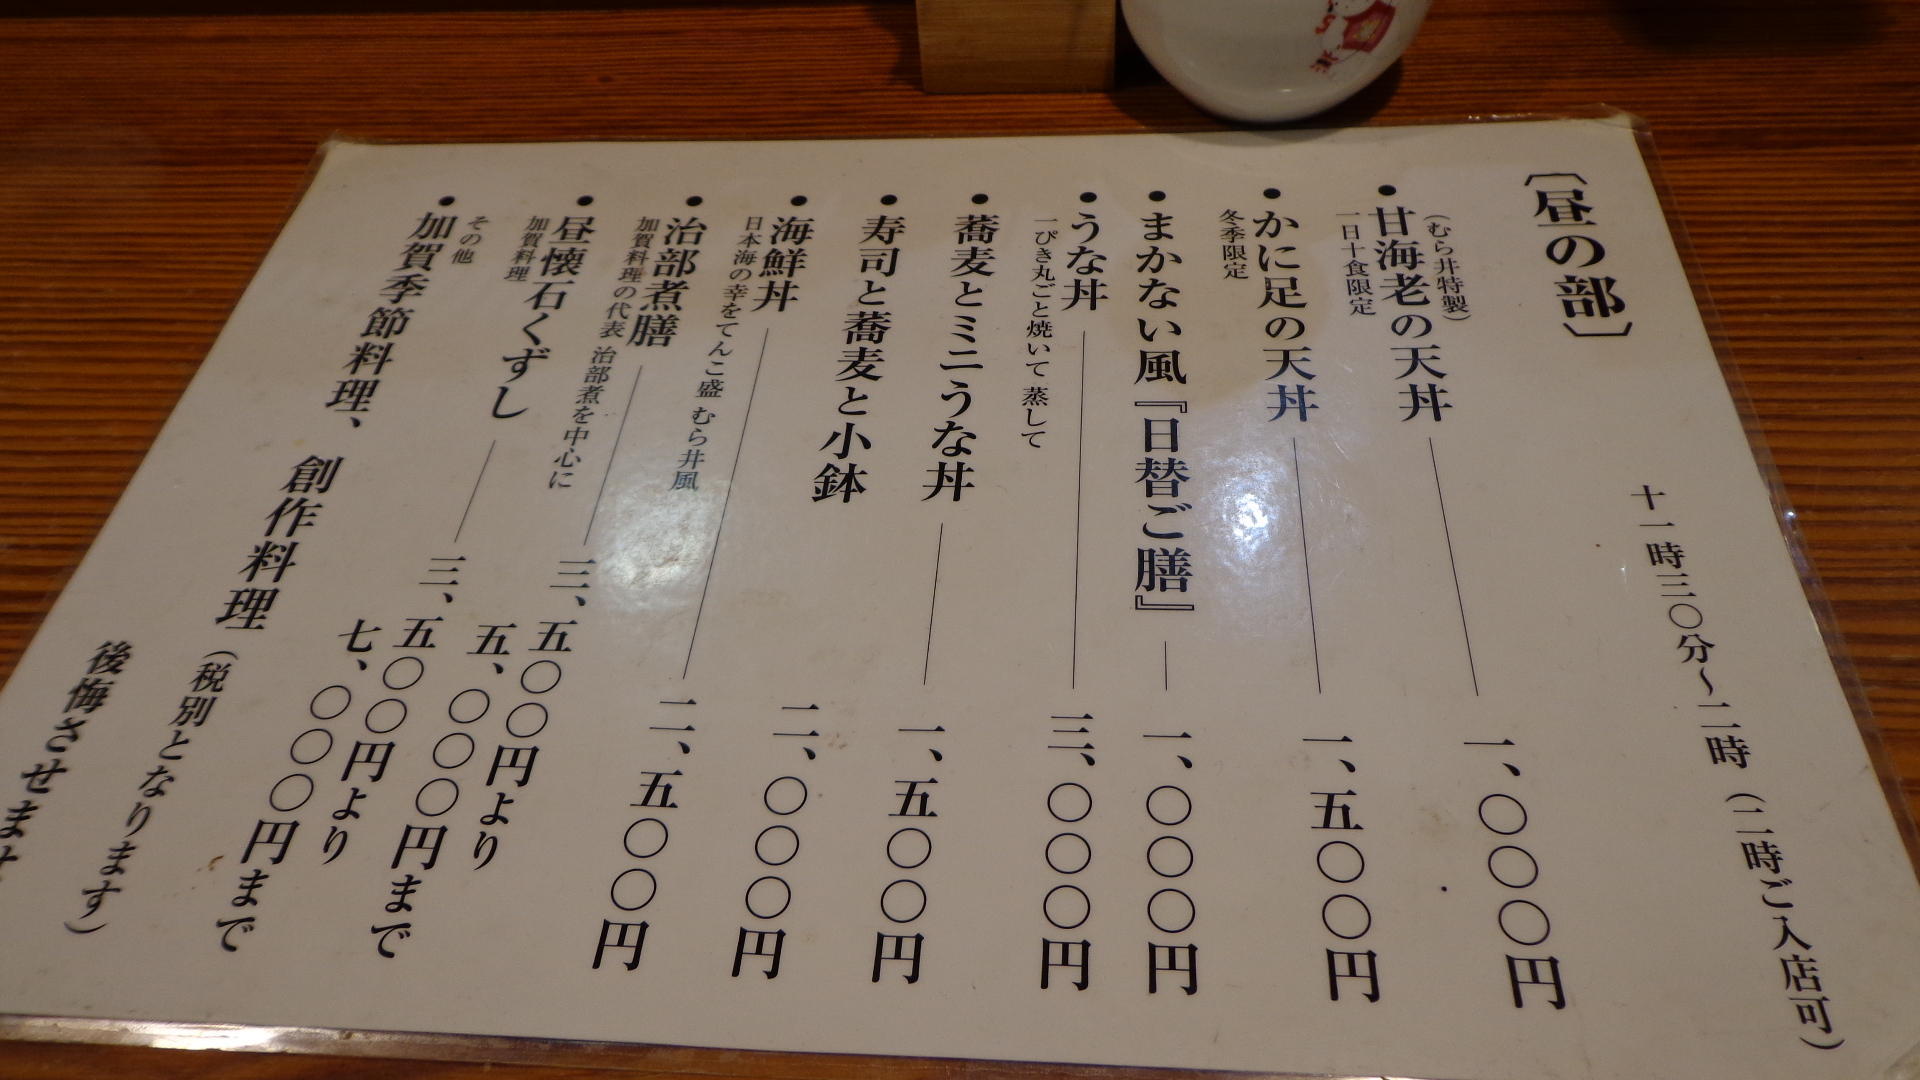 〔昼の部〕
十一時三〇分～二時(二時ご入店可)
(むら井特製)
●甘海老の天丼 一、〇〇〇円
一日十食限定
●かに足の天丼 一、五〇〇円
冬季限定
●まかない風『日替ご膳』 一、〇〇〇円
●うな丼 三、〇〇〇円
一ぴき丸ごと焼いて 蒸して
●蕎麦とミニうな丼 一、五〇〇円
●寿司と蕎麦と小鉢 二、〇〇〇円
●海鮮丼 二、五〇〇円
日本海の幸をてんこ盛 むら井風
●治部煮膳 三、五〇〇円より
五、〇〇〇円まで
加賀料理の代表 治部煮を中心に
●昼懐石くずし 三、五〇〇円より
七、〇〇〇円まで
加賀料理
その他
●加賀季節料理、創作料理
(税別となります)
後悔させませ